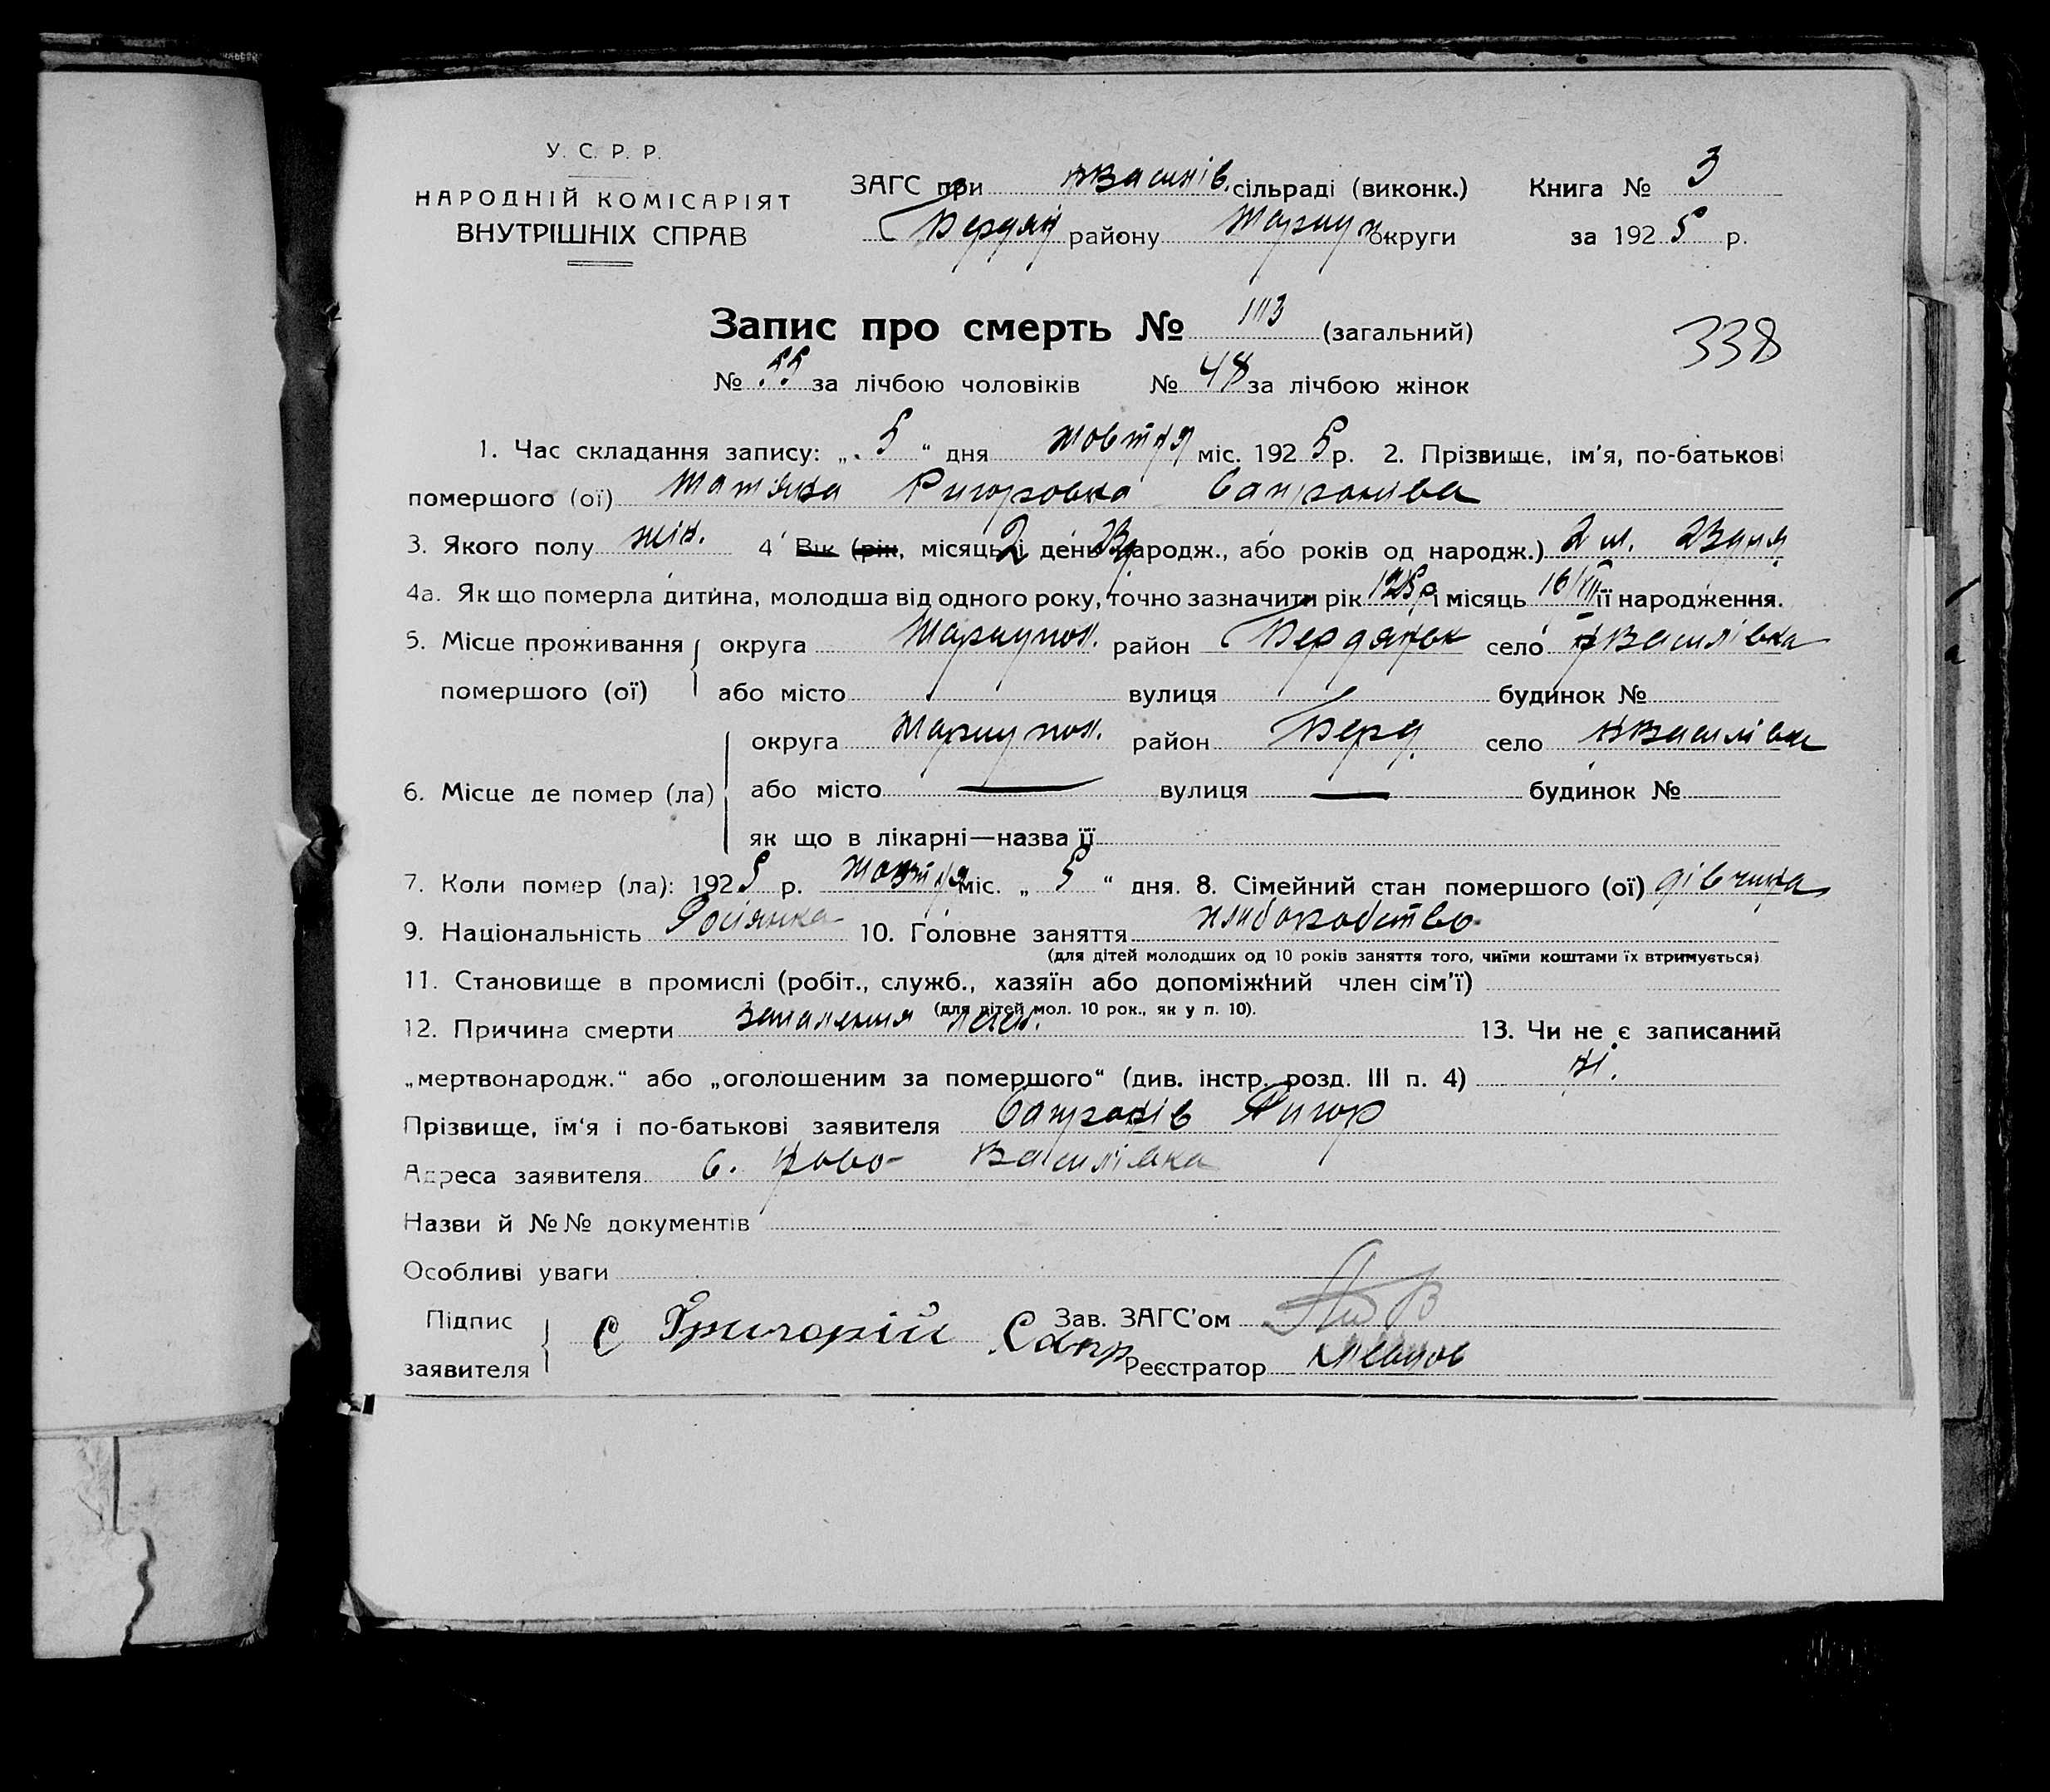 У. С. Р. Р.
НАРОДНІЙ КОМІСАРІЯТ
ВНУТРІШНІХ СПРАВ
ЗАГС при НВасилів. сільраді (виконк.) Книга № 3
Бердян району Мариуп. округи за 1925 р.
Запис про смерть № 113 (загальний)
338
№ 55 за лічбою чоловіків № 48 за лічбою жінок
1. Час складання запису: „5“ дня жовтня міс. 1925 р. 2. Прізвище, ім'я, по-батькові
помершого (ої) Татьяна Григоровна
3. Якого полу жін. 4 Вік (рік, місяць і день народж., або років од народж.) 2 м.
4а. Як що померла дитина, молодша від одного року, точно зазначити рік 1925 р і місяць 16/VII її народження.
5. Місце проживання округа Мариупол. район Бердянськ село НВасилівка
помершого (ої) або місто вулиця будинок №
округа Мариупол. район Берд. село НВасилівка
6. Місце де помер (ла) або місто — вулиця — будинок №
як що в лікарні—назва її
7. Коли помер (ла): 1925 р. жовтня міс. „5“ дня. 8. Сімейний стан помершого (ої) дівчина
9. Національність Росіянка 10. Головне заняття хліборобство
(для дітей молодших од 10 років заняття того, чиїми коштами їх втримується)
11. Становище в промислі (робіт., служб., хазяїн або допоміжний член сім'ї)
(для дітей мол. 10 рок., як у п. 10).
12. Причина смерти запалення леген. 13. Чи не є записаний
„мертвонародж.“ або „оголошеним за помершого“ (див. інстр. розд. III п. 4) ні.
Прізвище, ім'я і по-батькові заявителя Сапронів Григор
Адреса заявителя с. Ново-Василівка
Назви й №№ документів
Особливі уваги
Підпис Зав. ЗАГС'ом
заявителя Григорій Сапр Реєстратор